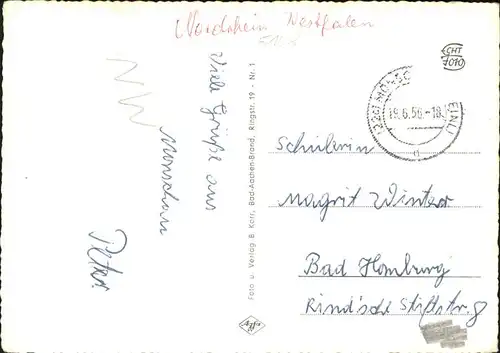 Nordrhein Westfalen
NW
Viele Grüße aus
Monschau
Peter
Foto u. Verlag B. Korr, Bad-Aachen-Brand, Ringstr. 19 - Nr. 1
Agfa
ECHT
FOTO
(22c) MONSC EIFEL)
19.6.56-18
a
Schülerin
Magrit Winter
Bad Homburg
Rind'sche Stiftstr. 8